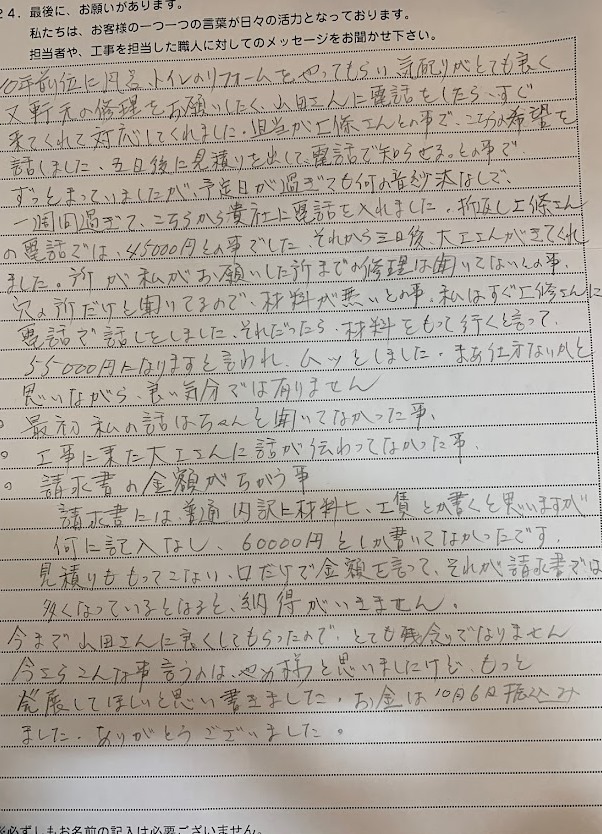 24. 最後に、お願いがあります。
私たちは、お客様の一つ一つの言葉が日々の活力となっております。
担当者や、工事を担当した職人に対してのメッセージをお聞かせ下さい。
10年前位に円る、トイレのリフォームをやってもらい気配りがとても良く
又軒天の修理をお願いしたく、山田さんに電話をしたら、すぐ
来てくれて対応してくれました。担当が上條さんとの事で、こちらの希望を
話しました、五日後に見積りを出して、電話で知らせる。との事で
ずっとまっていましたが、予定日が過ぎても何の音紗汰なしで、
一週間過ぎて、こちらから貴社に電話を入れました。折返し上條さん
の電話では、45000円との事でした、それから三日後、大工さんがきてくれ
ました。所が私がお願いした所までの修理は聞いてないとの事、
穴の所だけと聞いてるので、材料が無いとの事。私はすぐ上修さんに
電話で話しをしました、それだったら、材料をもって行くと言って、
55000円になりますと言われ、ムッとしました。まあ仕方ないかと
思いながら、良い気分では有りません
○ 最初 私の話はちゃんと聞いてなかった事、
○ 工事に来た大工さんに話が伝わってなかった事、
○ 請求書の金額がちがう事
請求書には、普通内訳に材料七、工賃とか書くと思いますが
何に記入なし、60000円としか書いてなかったです。
見積りももってこない、口だけで金額を言って、それが請求書では
多くなっているとなると、納得がいきません。
今まで山田さんに良くしてもらったので、とても残念でなりません
今さらこんな事言うのは、やが様と思いましたけど、もっと
発展してほしいと思い書きました。お金は10月6日振込み
ました。ありがとうございました。
※必ずしもお名前の記入は必要ございません。